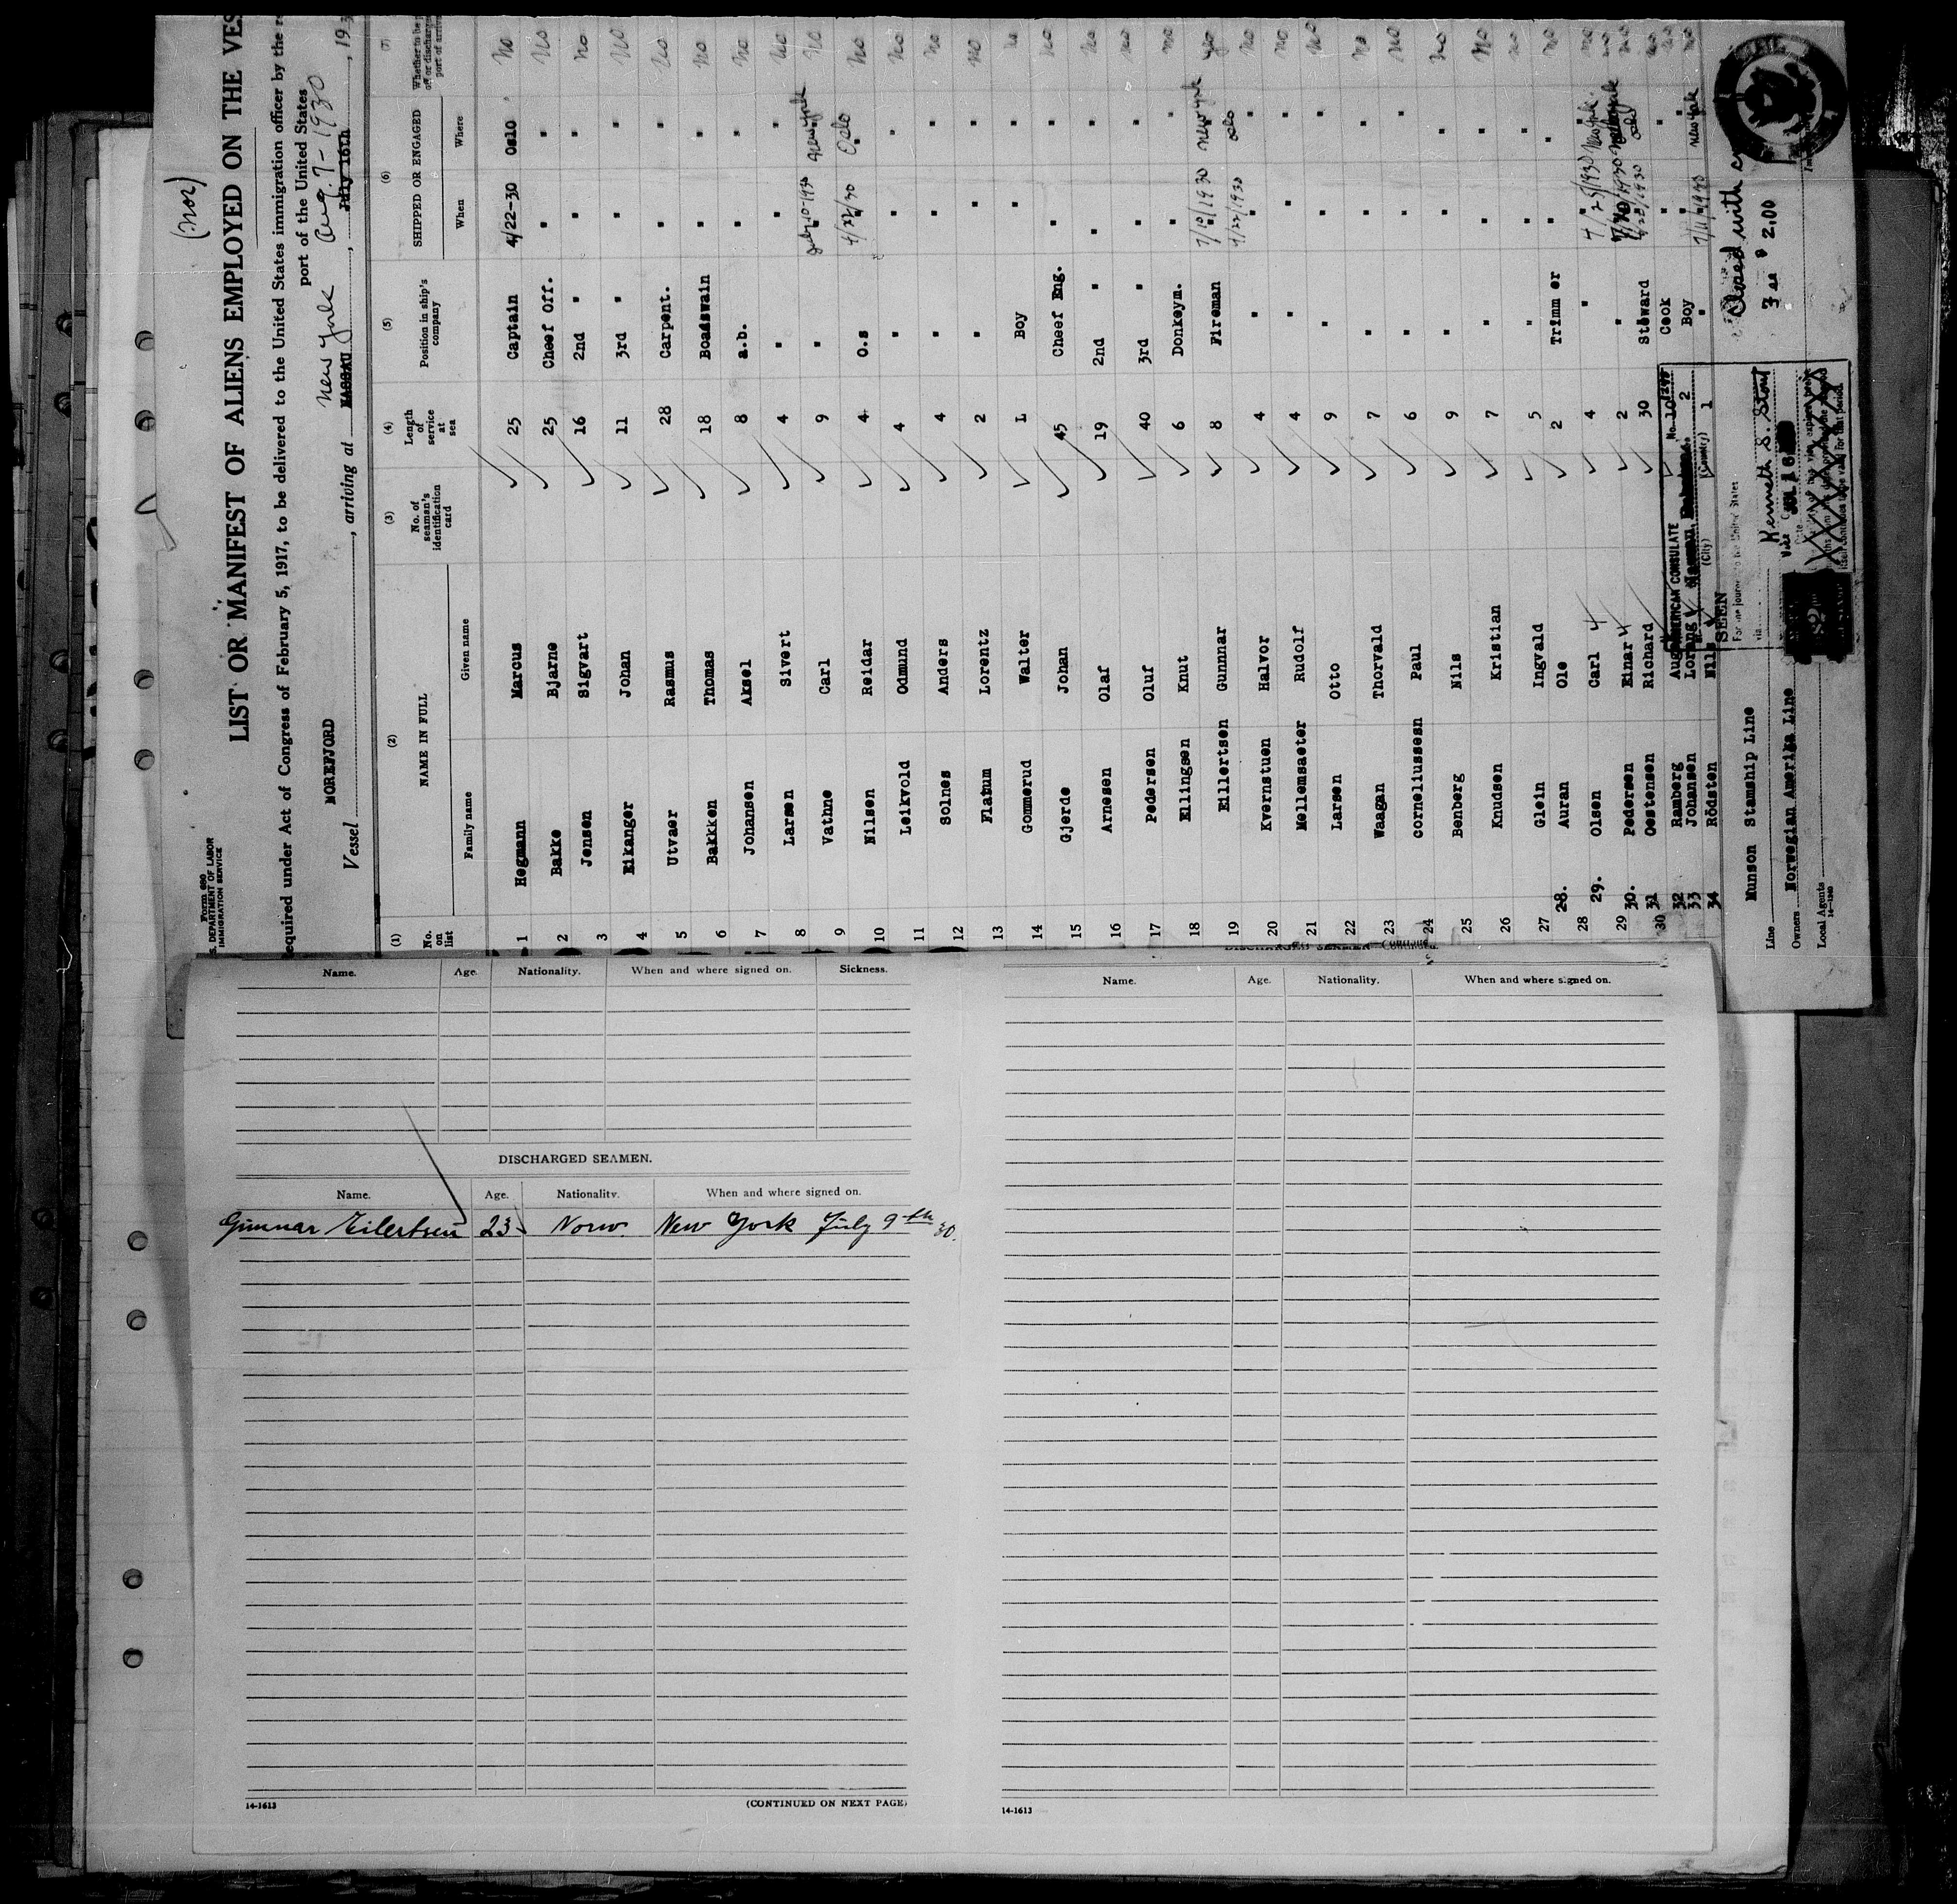 (nor)
Form 680
S. DEPARTMENT OF LABOR
IMMIGRATION SERVICE
LIST OR MANIFEST OF ALIENS EMPLOYED ON THE VES
equired under Act of Congress of February 5, 1917, to be delivered to the United States immigration officer by the r
port of the United States
Vessel MOREFJORD, arriving at NASSAU New York, July 16th Aug. 7 - 1930, 193
(1) (2) (3) (4) (5) (6) (7)
No. on list
NAME IN FULL
Family name Given name
No. of seaman's identification card
Length of service at sea
Position in ship's company
SHIPPED OR ENGAGED
When Where
Whether to be
off or discharg
port of arriv
1 Hegmann Marcus 25 Captain 4/22-30 Oslo no
2 Bakke Bjarne 25 Cheef Off. " " no
3 Jensen Sigvart 16 2nd " " " no
4 Eikanger Johan 11 3rd " " " no
5 Utvaer Rasmus 28 Carpent. " " no
6 Bakken Thomas 18 Boadswain " " no
7 Johansen Aksel 8 a.b. " " no
8 Larsen Sivert 4 " " " no
9 Vathne Carl 9 " July 10-1930 New York no
10 Nilsen Reidar 4 O.s 4/22/30 Oslo no
11 Leikvold Odmund 4 " " " no
12 Solnes Anders 4 " " " no
13 Flatum Lorentz 2 " " " no
14 Gommerud Walter L Boy " " no
15 Gjerde Johan 45 Cheef Eng. " " no
16 Arnesen Olaf 19 2nd " " " no
17 Pedersen Oluf 40 3rd " " " no
18 Ellingsen Knut 6 Donkeym. " " no
19 Eillertsen Gunnnar 8 Fireman 7/10/1930 New York yes
20 Kvernstuen Halvor 4 " 4/22/1930 oslo no
21 Mellemsaeter Rudolf 4 " " " no
22 Larsen Otto 9 " " " no
23 Waagan Thorvald 7 " " " no
24 corneliussesn Paul 6 " " " no
25 Benberg Nils 9 " " " no
26 Knudsen Kristian 7 " " " no
27 Glein Ingvald 5 " " " no
28. Auran Ole 2 Trimm er " " no
28 29. Olsen Carl 4 4 " New York. no
29 30. Pedersen Einar 4 2 " New York no
31 Oestensen Richard 30 Steward oslo no
30 32 Ramberg Cook " " no
33 Johansen 2 Boy " " no
34 Rödsten Nils 1 " New York no
AMERICAN CONSULATE
(City) (Country)
SEEN
For the journey to the United States
via
Kenneth S. Stout
Closed with
3 2.00
Line Munson Stamship Line
Owners Norwegian Amerika Line
Local Agents
14—1240
Name. Age. Nationality. When and where signed on. Sickness.
DISCHARGED SEAMEN.
Name. Age. Nationality. When and where signed on.
Gunnar Eilertsen 23 Norw. New York July 9th 30.
14-1613
(CONTINUED ON NEXT PAGE)
DISCHARGED SEAMEN—Continued.
Name. Age. Nationality. When and where signed on.
14-1613